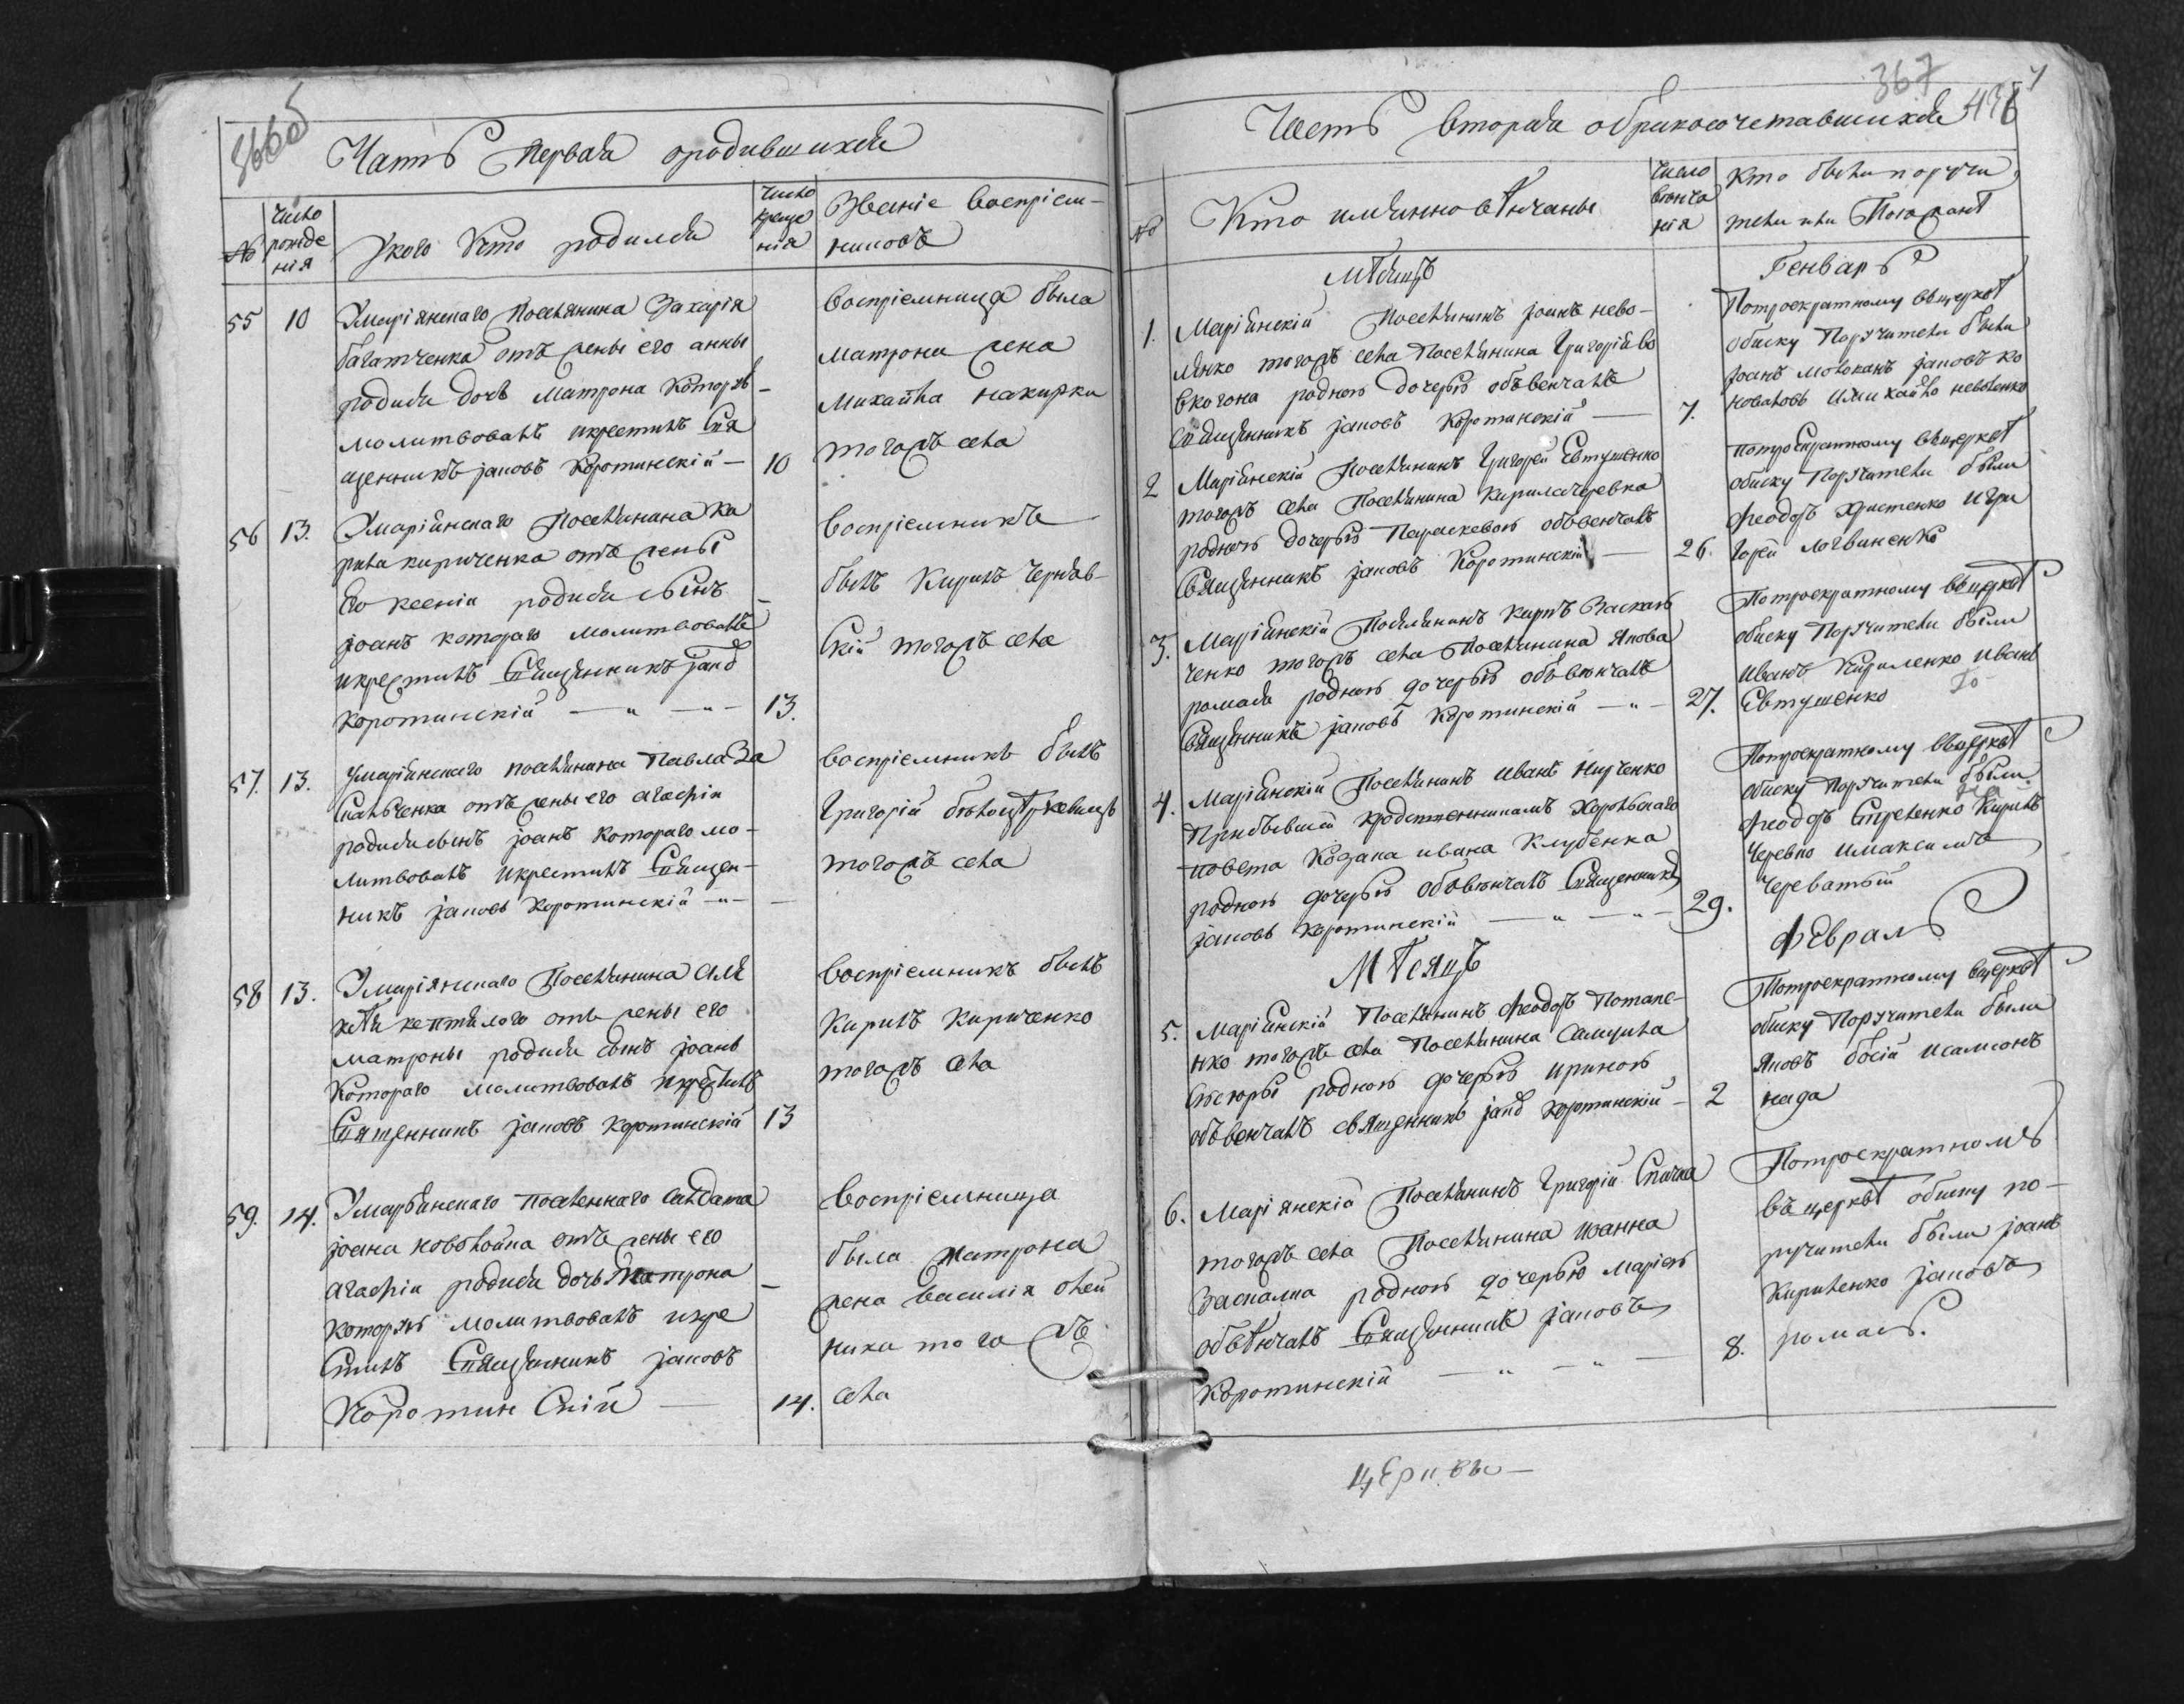 366об
Часть Первая ородившихся
№
число рожде нія
Укого Кто родился
число креще нія
Званіе воспріем-
никовъ
55 10 Умаріянскаго Поселянина Захарія
багатченка отъ жены его анны
родися дочь Матрона Которую
молитвовалъ икрестилъ Свя
щенникъ Іаковъ Коротинскій — 10
воспріемница была
матрона жена
Михайла
тогожъ села
56 13. Умаріинскаго Поселянина Ки
рила кириченка отъ жены
Его ксеніи родися сынъ
Іоанъ котораго молитвовалъ
икрестилъ Священникъ
Коротинскій — " — " — 13.
воспріемникъ
былъ Кирилъ Черняв-
скій тогожъ села
57. 13. Умаріинскаго поселянина Павла За
отъ жены его агафіи
родися сынъ Іоанъ Котораго мо-
литвовалъ икрестилъ Священ-
никъ Іаковъ Коротинскій — " —
воспріемникъ былъ
Григорій
тогожъ села
58 13. Умаріянскаго Поселянина Але
отъ жены его
матроны родися сынъ Іоанъ
Котораго молитвовалъ икрестилъ
Священникъ Іаковъ Коротинскій 13
воспріемникъ былъ
Кирилъ Кириченко
тогожъ села
59. 14. Умаріинскаго поселеннаго салдата
Іоана отъ жены его
агафіи родися дочь Матрона
которую молитвовалъ икре
стилъ Священникъ Іаковъ
Коротин Скій — 14.
воспріемница
была матрона
жена василія олей
ника того жъ
села
367
Часть вторая обракосочетавшихся
№
Кто имянно вѣнчаны
число венча нія
Кто были поручи
тели или Поезжанѣ
Мѣсяцъ Генварь
1. Маріинскій Поселянинъ Іоанъ нево-
ленко тогожъ села Поселянина Григорія во
родною дочерью объвенчалъ
Священникъ Іаковъ Коротинскій — 7.
Потроекратному вцеркѣ
обыску Поручители были
Іоанъ молоканъ Іаковъ ко
новаловъ имихайло неволенко
2 Маріинскій Поселянинъ Григорей Евтушенко
тогожъ села Поселянина Кирила черевка
родною дочерью Параскевою обовенчалъ
Священникъ Іаковъ Коротинскій — 26.
потроекратному вцеркѣ
обыску Поручители были
Феодоръ Христенко игри
горей логвиненко
3. Маріинскій Поселянинъ Карпъ Заскаль
ченко тогожъ села Поселянина Якова
ромася родною дочерью объвѣнчалъ
Священникъ Іаковъ Коротинскій — " — 27.
Потроекратному вцеркѣ
обыску Поручители были
Иванъ Кириленко иванъ
Евтушенко
4. Маріинскій Поселянинъ Иванъ
Прибывшей Хорольскаго
повета Козака ивана Клубенка
родною дочерью обовѣнчалъ Священникъ
Іаковъ Коротинскій — " — " — 29.
Потроекратному вцеркѣ
обыску Поручители были
Феодоръ Кирилъ
Черевко имаксимъ
Череватый
Мѣсяцъ Февраль
5. Маріинскій Поселянинъ Феодоръ Потапе-
нко тогожъ села Поселянина Самуила
родною дочерью ириною
объвенчалъ священникъ Коротинскій — 2
Потроекратному вцеркѣ
обыску Поручители были
Яковъ босій исамсонъ
нага
6. Маріянскій Поселянинъ Григорій Спичка
тогожъ села Поселянина иоанна
Заскалка родною дочерью маріею
объвѣнчалъ Священникъ Іаковъ
Коротинскій — " — " — 8.
Потроекратному
въ церквѣ обыску по-
ручители были Іоанъ
Кириленко Іаковъ
ромась.
церквы —